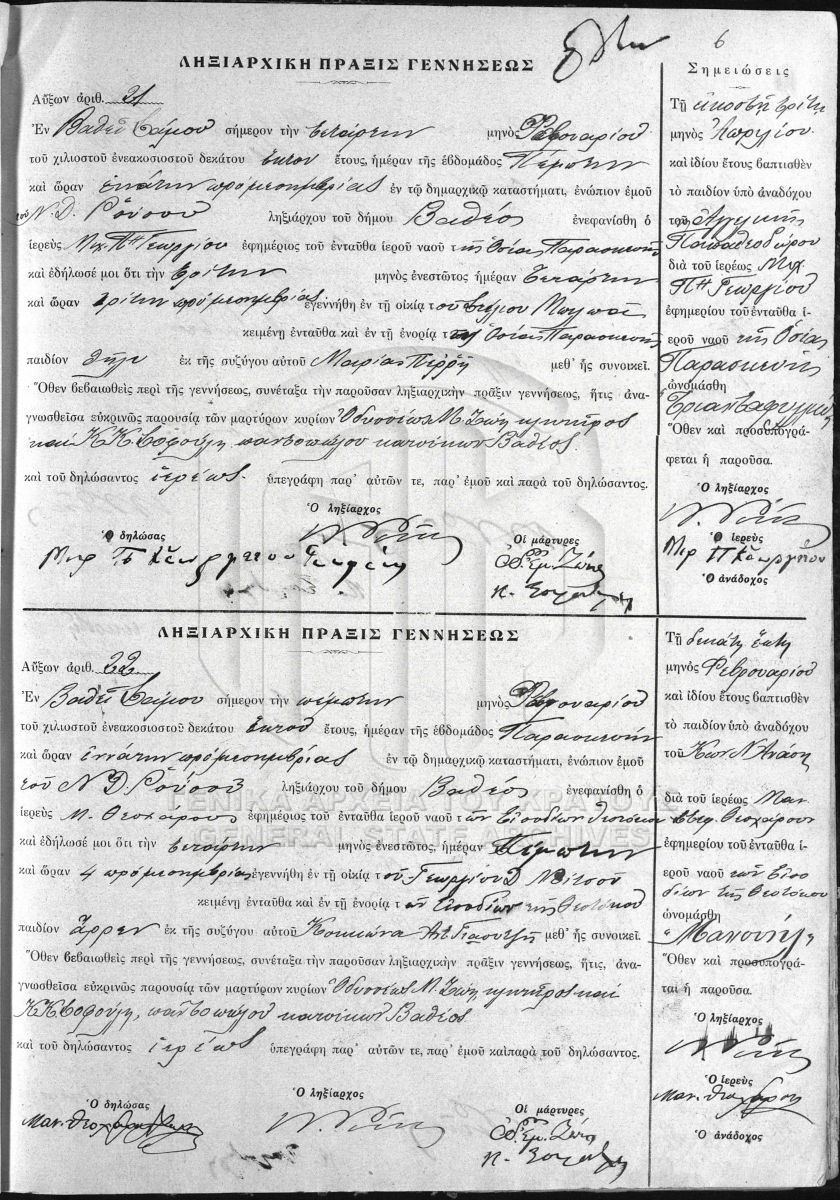 6
ΛΗΞΙΑΡΧΙΚΗ ΠΡΑΞΙΣ ΓΕΝΝΗΣΕΩΣ
Αὔξων ἀριθ. 21
Ἐν Βαθεῖ Σάμου σήμερον τὴν τετάρτην μηνὸς Φεβρουαρίου
τοῦ χιλιοστοῦ ἐνεακοσιοστοῦ δεκάτου ἕκτου ἔτους, ἡμέραν τῆς ἑβδομάδος Πέμπτην
καὶ ὥραν ἐννάτην προμεσημβρίας ἐν τῷ δημαρχικῷ καταστήματι, ἐνώπιον ἐμοῦ
τοῦ Ν. Δ. Ρούσου ληξιάρχου τοῦ δήμου Βαθέος ἐνεφανίσθη ὁ
ἱερεὺς Μιχ. Πα Γεωργίου ἐφημέριος τοῦ ἐνταῦθα ἱεροῦ ναοῦ τῆς Ὁσίας Παρασκευῆς
καὶ ἐδήλωσέ μοι ὅτι τὴν τρίτην μηνὸς ἐνεστῶτος ἡμέραν Τετάρτην
καὶ ὥραν τρίτην προμεσημβρίας ἐγεννήθη ἐν τῇ οἰκίᾳ τοῦ
κειμένῃ ἐνταῦθα καὶ ἐν τῇ ἐνορίᾳ τῆς Ὁσίας Παρασκευῆς
παιδίον θῆλυ ἐκ τῆς συζύγου αὐτοῦ Μαρίας μεθ' ἧς συνοικεῖ.
Ὅθεν βεβαιωθεὶς περὶ τῆς γεννήσεως, συνέταξα τὴν παροῦσαν ληξιαρχικὴν πρᾶξιν γεννήσεως, ἥτις ἀνα-
γνωσθεῖσα εὐκρινῶς παρουσίᾳ τῶν μαρτύρων κυρίων Ὀδυσσέως Μ. Ζώη κλητῆρος
καὶ Κ. Κ. Σοφούλη παντοπώλου κατοίκων Βαθέος
καὶ τοῦ δηλώσαντος ἱερέως ὑπεγράφη παρ' αὐτῶν τε, παρ' ἐμοῦ καὶ παρὰ τοῦ δηλώσαντος.
Ὁ ληξίαρχος
Ὁ δηλώσας
Οἱ μάρτυρες
Σημειώσεις
Τῇ εἰκοστῇ τρίτῃ
μηνὸς Ἀπριλίου
καὶ ἰδίου ἔτους βαπτισθὲν
τὸ παιδίον ὑπὸ ἀναδόχου
τοῦ Ἀγγελικῆς
Παπαθεοδώρου
διὰ τοῦ ἱερέως Μιχ
Πα Γεωργίου
ἐφημερίου τοῦ ἐνταῦθα ἱ-
εροῦ ναοῦ τῆς Ὁσίας
Παρασκευῆς
ὠνομάσθη
Τριανταφυλλιὰ
Ὅθεν καὶ προσυπογρά-
φεται ἡ παροῦσα.
Ὁ ληξίαρχος
Ὁ ἱερεὺς
Μιχ Πα Γεωργίου
Ὁ ἀνάδοχος
ΛΗΞΙΑΡΧΙΚΗ ΠΡΑΞΙΣ ΓΕΝΝΗΣΕΩΣ
Αὔξων ἀριθ. 22
Ἐν Βαθεῖ Σάμου σήμερον τὴν πέμπτην μηνὸς Φεβρουαρίου
τοῦ χιλιοστοῦ ἐνεακοσιοστοῦ δεκάτου ἕκτου ἔτους, ἡμέραν τῆς ἑβδομάδος Παρασκευὴν
καὶ ὥραν ἐννάτην προμεσημβρίας ἐν τῷ δημαρχικῷ καταστήματι, ἐνώπιον ἐμοῦ
τοῦ Ν Δ. Ρούσου ληξιάρχου τοῦ δήμου Βαθέος ἐνεφανίσθη ὁ
ἱερεὺς Μ. Θεοχάρους ἐφημέριος τοῦ ἐνταῦθα ἱεροῦ ναοῦ τῶν Εἰσοδίων Θεοτόκου
καὶ ἐδήλωσέ μοι ὅτι τὴν τετάρτην μηνὸς ἐνεστῶτος, ἡμέραν Πέμπτην
καὶ ὥραν 4 προμεσημβρίας ἐγεννήθη ἐν τῇ οἰκίᾳ τοῦ Γεωργίου Δ
κειμένῃ ἐνταῦθα καὶ ἐν τῇ ἐνορίᾳ τῶν Εἰσοδίων τῆς Θεοτόκου
παιδίον ἄρρεν ἐκ τῆς συζύγου αὐτοῦ Κοκκώνα μεθ' ἧς συνοικεῖ.
Ὅθεν βεβαιωθεὶς περὶ τῆς γεννήσεως, συνέταξα τὴν παροῦσαν ληξιαρχικὴν πρᾶξιν γεννήσεως, ἥτις, ἀνα-
γνωσθεῖσα εὐκρινῶς παρουσίᾳ τῶν μαρτύρων κυρίων Ὀδυσσέως Μ. Ζώη κλητῆρος καὶ
Κ Κ Σοφούλη, παντοπώλου κατοίκων Βαθέος
καὶ τοῦ δηλώσαντος ἱερέως ὑπεγράφη παρ' αὐτῶν τε, παρ' ἐμοῦ καὶ παρὰ τοῦ δηλώσαντος.
Ὁ δηλώσας
Ὁ ληξίαρχος
Οἱ μάρτυρες
Τῇ δεκάτῃ ἕκτῃ
μηνὸς Φεβρουαρίου
καὶ ἰδίου ἔτους βαπτισθὲν
τὸ παιδίον ὑπὸ ἀναδόχου
τοῦ Κων Ν
διὰ τοῦ ἱερέως Μαν.
Θεοχάρους
ἐφημερίου τοῦ ἐνταῦθα ἱ-
εροῦ ναοῦ τῶν Εἰσο
δίων τῆς Θεοτόκου
ὠνομάσθη
"Μανουὴλ"
Ὅθεν καὶ προσυπογρά-
φεται ἡ παροῦσα.
Ὁ ληξίαρχος
Ὁ ἱερεὺς
Ὁ ἀνάδοχος
ΓΕΝΙΚΑ ΑΡΧΕΙΑ ΤΟΥ ΚΡΑΤΟΥΣ
GENERAL STATE ARCHIVES